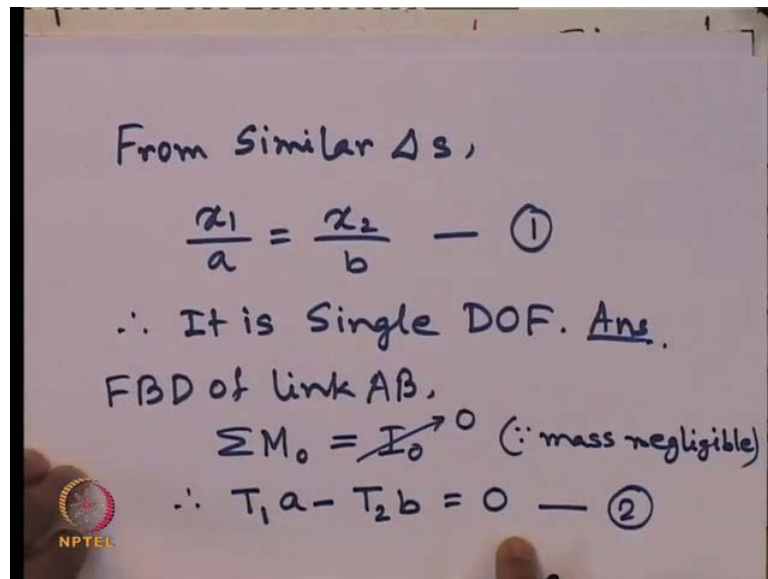 From Similar Δs,
x₁/a = x₂/b — ①
∴ It is Single DOF. Ans.
FBD of link AB.
ΣM₀ = I₀ → 0 (∵ mass negligible)
∴ T₁a − T₂b = 0 — ②
NPTEL